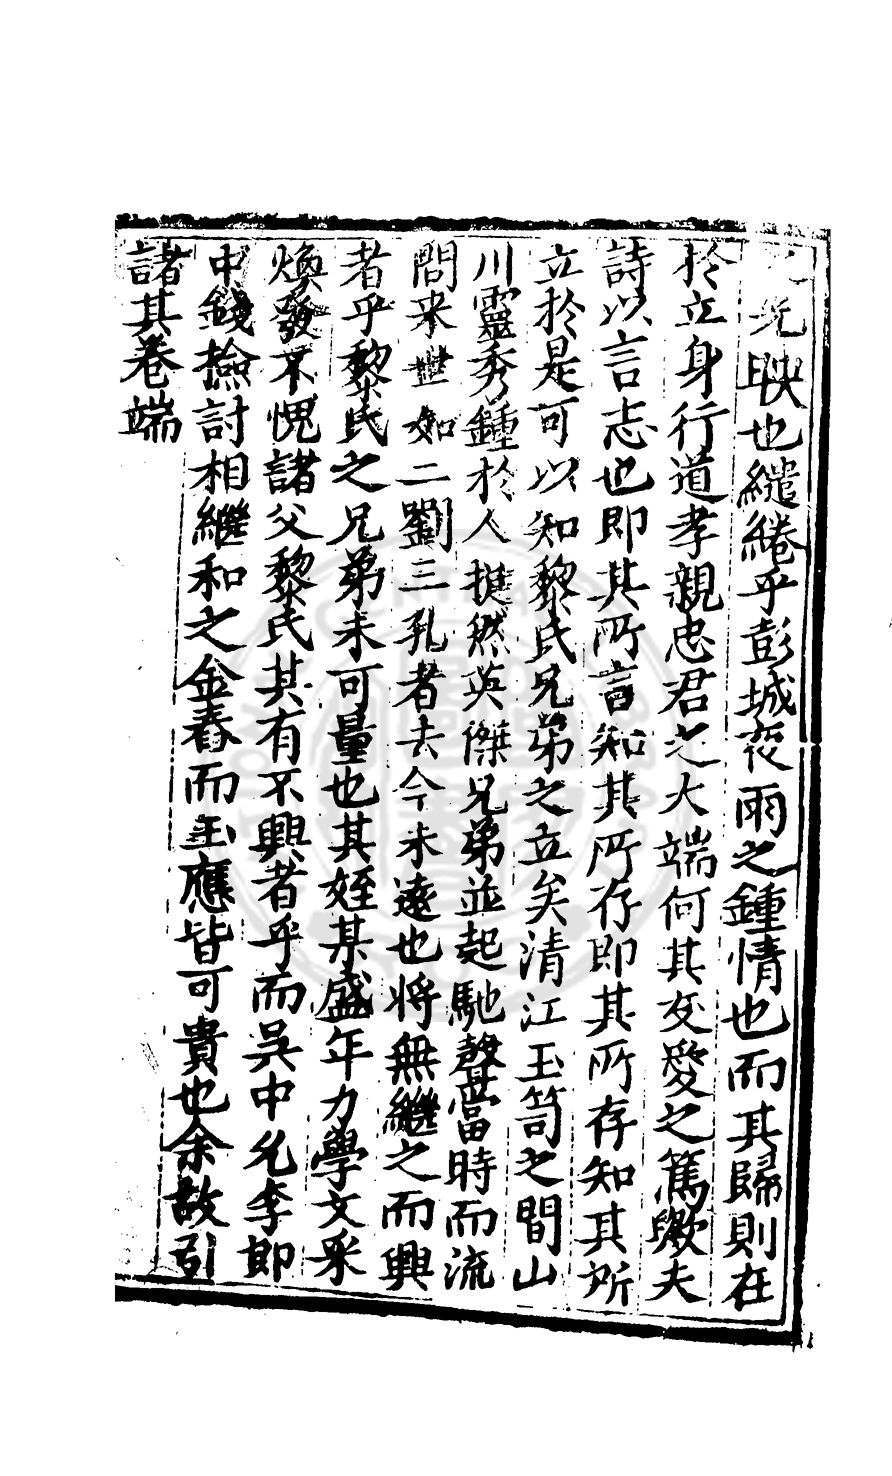 先映也繾綣乎彭城夜雨之鍾情也而其歸則在
於立身行道孝親忠君之大端何其友愛之篤歟夫
詩以言志也即其所言知其所存即其所存知其所
立於是可以知黎氏兄弟之立矣清江玉笥之間山
川靈秀鍾於人挺然英傑兄弟並起馳聲當時而流
問来世如二劉三孔者去今未遠也將無繼之而興
者乎黎氏之兄弟未可量也其姪某盛年力學文采
煥發不愧諸父黎氏其有不興者乎而吳中允李郎
中錢檢討相繼和之金舂而玉應皆可貴也余故引
諸其卷端